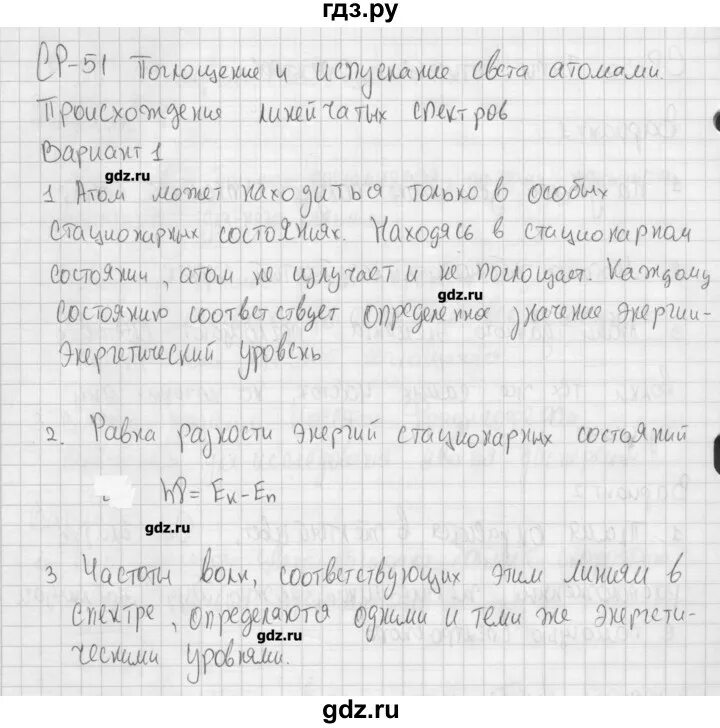 гдз.ру
СР-51 Поглощение и испускание света атомами.
Происхождение линейчатых спектров
Вариант 1
gdz.ru
1 Атом может находиться только в особых
стационарных состояниях. Находясь в стационарном
состоянии, атом не излучает и не поглощает. Каждому
gdz.ru
состоянию соответствует определенное значение энергии-
энергетический уровень
2. Равна разности энергий стационарных состояний
hν = Eк - En
gdz.ru
3 Частоты волн, соответствующих этим линиям в
спектре, определяются одними и теми же энергети-
gdz.ru
ческими уровнями.
gdz.ru